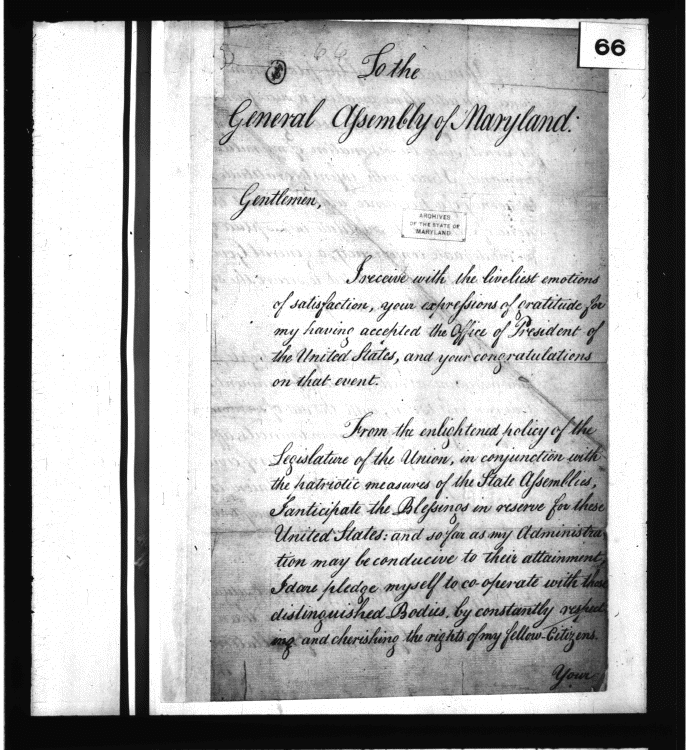 66
To the
General Assembly of Maryland.
Gentlemen,
ARCHIVES
OF THE STATE OF
MARYLAND
I receive with the liveliest emotions
of satisfaction, your expressions of gratitude for
my having accepted the Office of President of
the United States, and your congratulations
on that event.
From the enlightened policy of the
Legislature of the Union, in conjunction with
the patriotic measures of the State Assemblies,
I anticipate the Blessings in reserve for these
United States: and so far as my Administra
tion may be conducive to their attainment,
I dare pledge myself to co-operate with those
distinguished Bodies, by constantly respect
ing and cherishing the rights of my fellow-Citizens.
Your